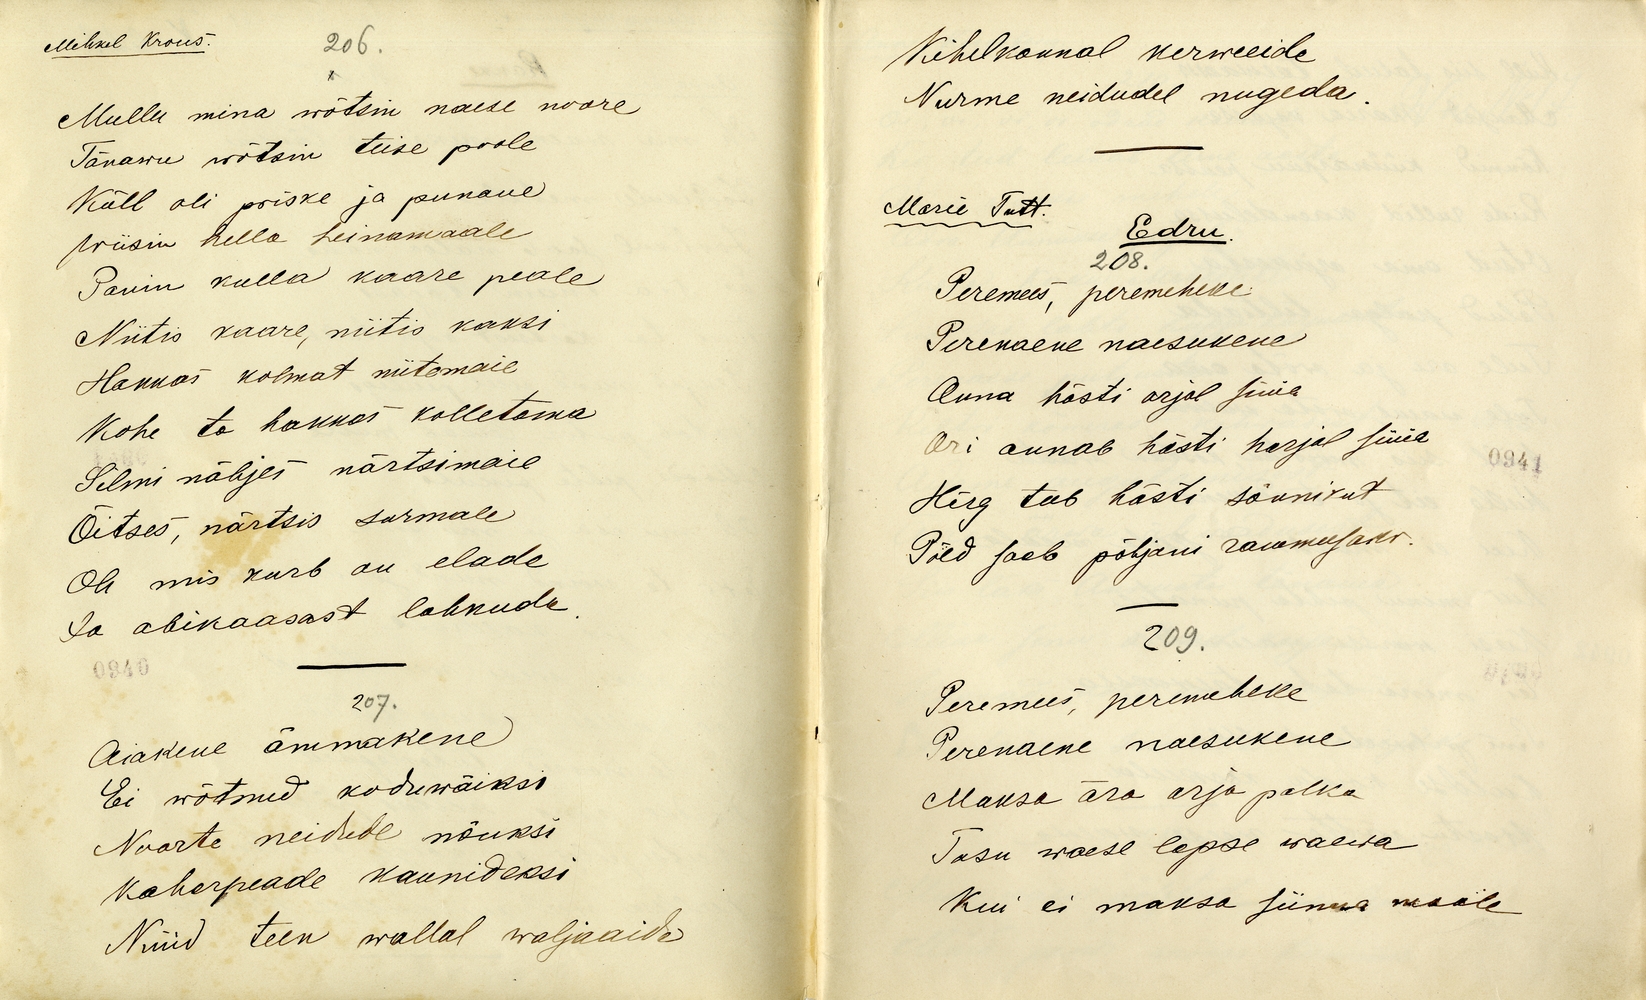 Mihkel Krous.
206.
Mullu mina wõtsin naese noore
Tänawu wõtsin teise poole
Küll oli priske ja punane
Wiisin hella heinamaale
Panin kulla kaare peale
Niitis kaare, niitis kaksi
Hakkas kolmat niitemaie
Kohe ta hakkas kolletama
Silmi nähjes närtsimaie
Õitses, närtsis surmale
Oh mis kurb on elada
Ja abikaasast lahkuda.
0940
207.
Aiakene ämmakene
Ei wõtnud koduwäiksi
Noorte neidude nõuksi
Kaharpeade kaunideksi
Nüüd teen wallal waljaaida
Kihelkonnal kerweeida
Nurme neidudel nugeda.
Marie Tutt.
Edru.
208.
Peremees, peremeheke
Perenaene naesukene
Anna hästi orjal süüa
Ori annab hästi harjal süüa
Härg teeb hästi sõnnikut
Põld saab põhjani rammusaks.
0941
209.
Peremees, peremeheke
Perenaene naesukene
Maksa ära orja palka
Tasu waese lapse waewa
Kui ei maksa siinna maale